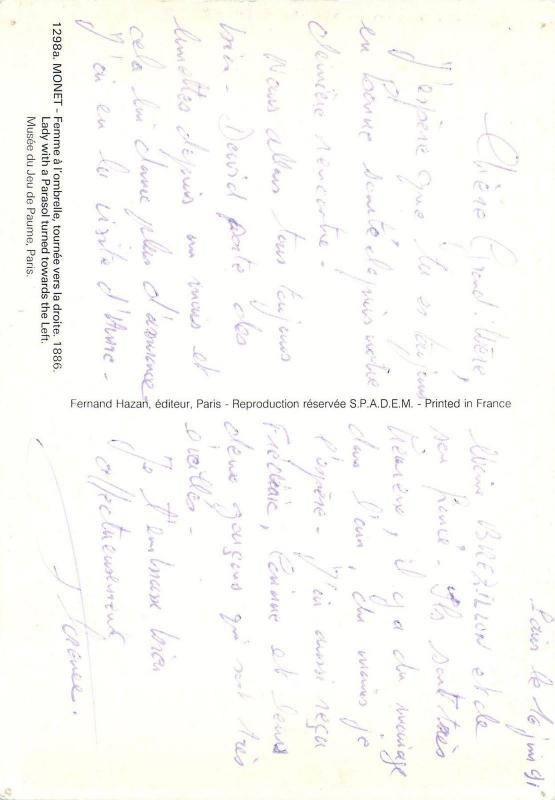 Paris le 16 juin 91
Chère Grand'Mère,
J'espère que tu es toujours
en bonne santé depuis notre
dernière rencontre -
Nous allons tous toujours
bien - David porte des
lunettes depuis un mois et
cela lui donne plus d'assurance -
J'ai eu la visite d'Anne -
Marie BREZILLON et de
son fiancé - Ils sont très
heureux, il y a du mariage
dans l'air, du moins je
l'espère - J'ai aussi reçu
Frédéric, et leurs
deux garçons qui sont très
éveillés -
Je t'embrasse bien
affectueusement
1298a. MONET - Femme à l'ombrelle, tournée vers la droite. 1886.
Lady with a Parasol turned towards the Left.
Musée du Jeu de Paume, Paris.
Fernand Hazan, éditeur, Paris - Reproduction réservée S.P.A.D.E.M. - Printed in France